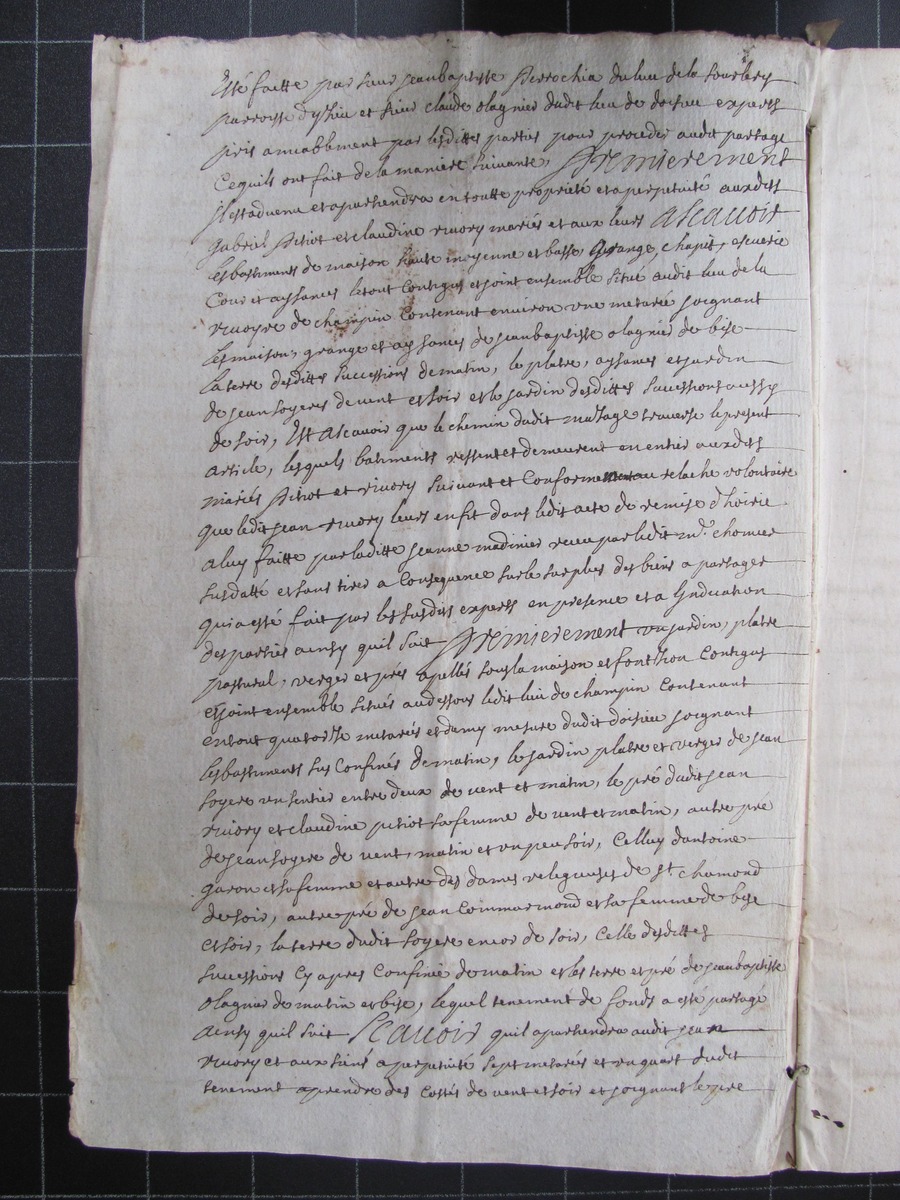 Esté faitte par sieur Jean baptiste du lieu de la
parroisse et sieur claude olagnier dudit lieu de doisieu experts
pris amiablement par lesdittes parties pour proceder audit partage
Cequils ont fait de la maniere suivante, Premierement
Il est advenu et apartiendra en toutte proprieté et a perpetuité auxdits
Gabriel Pitiot et claudine rivory mariés et aux leurs Ascavoir
les bastiments de maison haute moyenne et basse Grange, chapit, escuerie
Cour et aysances le tout Contigus et joint ensemble situé audit lieu de la
de champin Contenant environ une metarée joignant
les maison, grange et aysances de jean baptiste olagnier de bise
la terre desdittes successions de matin, le platre, aysances et jardin
de jean soyere de vent et soir et le jardin desdittes successions aussy
de soir, Est Ascavoir que le chemin dudit masage traverse le present
article, lesquels batiments restent et demeurent en entier auxdits
mariés Pitiot et rivory suivant et Conforme au relache volontaire
que ledit jean rivory leurs en fit dans ledit acte de remise d'hoirie
a luy faitte par laditte jeanne madinier receu par ledit me. chomier
susdatté et sans tirer a Consequence sur le surplus des biens a partager
qui a esté fait par les susdits experts en presence et a Lindication
des parties ainsy quil suit Premierement un jardin, platre
pastural, verger et prés apellés sous la maison et Contigus
et joint ensemble situés audessous ledit lieu de champin Contenant
en tout quatorze metarées et demy mesure dudit doisieu joignant
les bastiments sus Confinés de matin, le jardin platre et verger de jean
soyere un sentier entre deux de vent et matin, le pré dudit jean
rivory et claudine pitiot sa femme de vent et matin, autre pré
de jean soyere de vent, matin et un peu soir, Celluy d'antoine
garon et sa femme et autre des dames relegieuses de st chamond
de soir, autre pré de jean Commarmond et sa femme de bise
et soir, la terre dudit soyere encor de soir, Celle desdittes
successions Cy apres Confinée de matin et les terre et pré de jean baptiste
olagnier de matin et bise, lequel tenement de fonds a esté partagé
ainsy quil suit Scavoir quil apartiendra audit jean
rivory et aux siens a perpetuité sept metarées et un quart dudit
tenement a prendre des Costés de vent et soir et joignant le pré